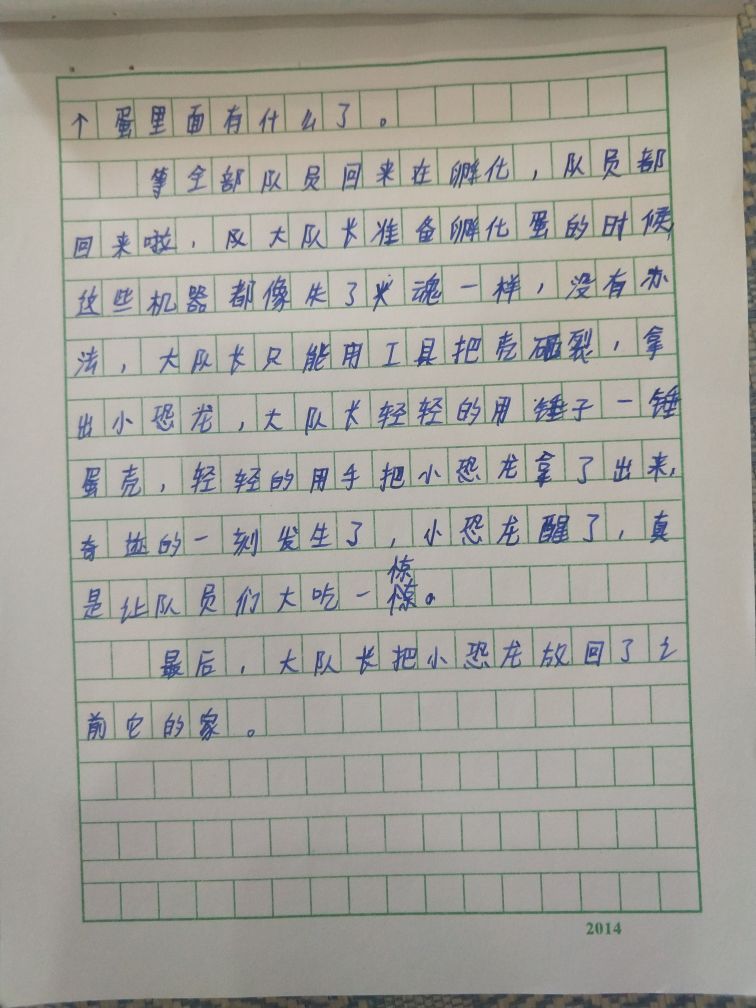 个蛋里面有什么了。
等全部队员回来在孵化，队员都
回来啦，大队长准备孵化蛋的时候，
这些机器都像失了灵魂一样，没有办
法，大队长只能用工具把壳砸裂，拿
出小恐龙，大队长轻轻的用锤子一锤
蛋壳，轻轻的用手把小恐龙拿了出来，
奇迹的一刻发生了，小恐龙醒了，真
是让队员们大吃一惊。
最后，大队长把小恐龙放回了之
前它的家。
2014